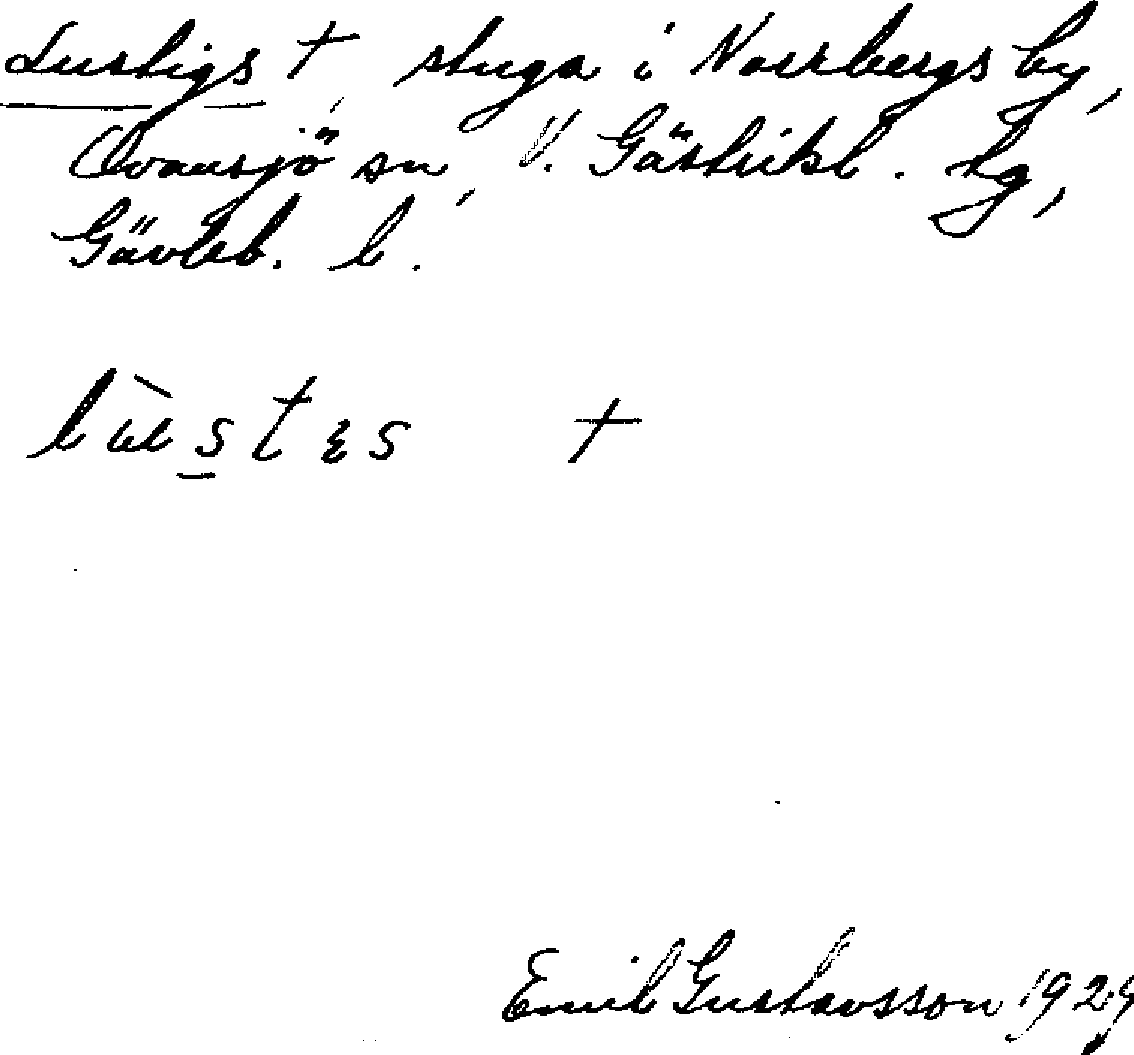 Lustigs †, stuga i Norrbergs by,
Ovansjö sn, V. Gästrikl. tg,
Gävleb. l.
lùstɛs †
Emil Gustavsson 1929